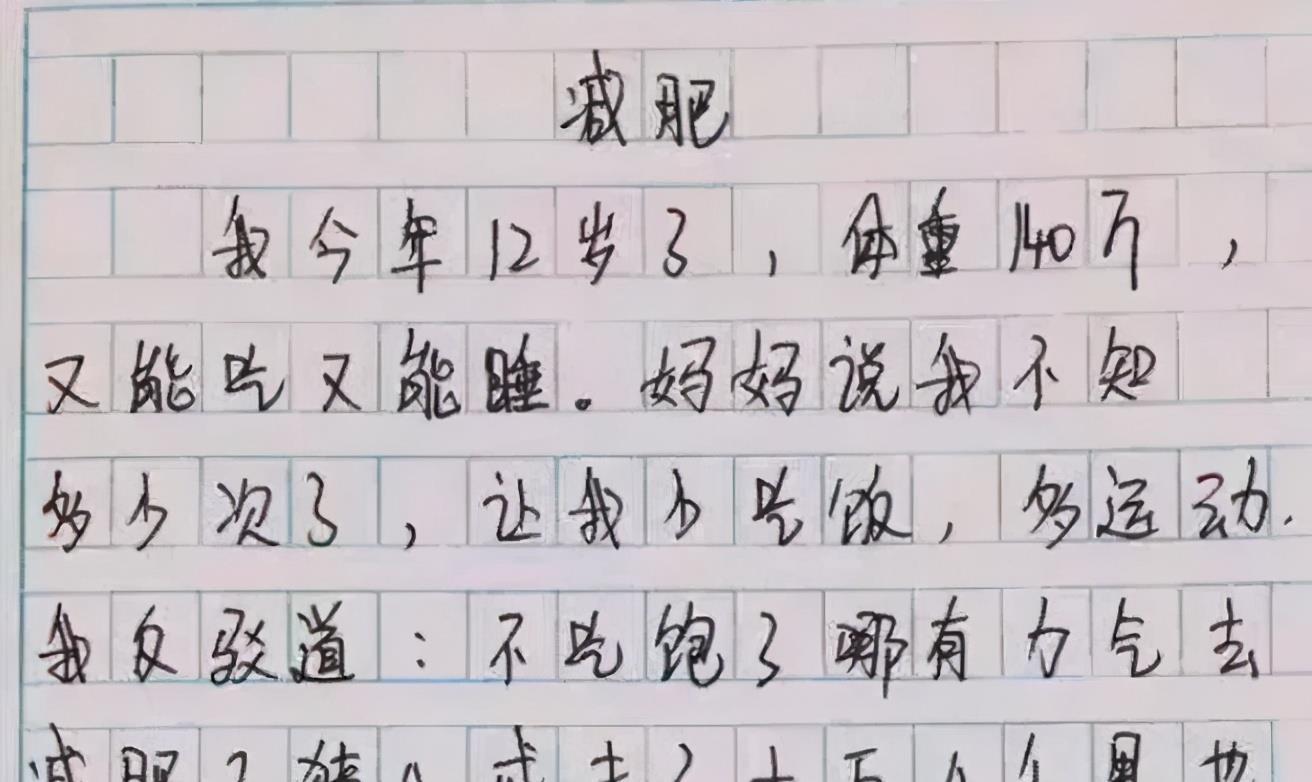 减肥
我今年12岁了，体重140斤，
又能吃又能睡。妈妈说我不知
多少次了，让我少吃饭，多运动.
我反驳道：不吃饱了哪有力气去
减肥